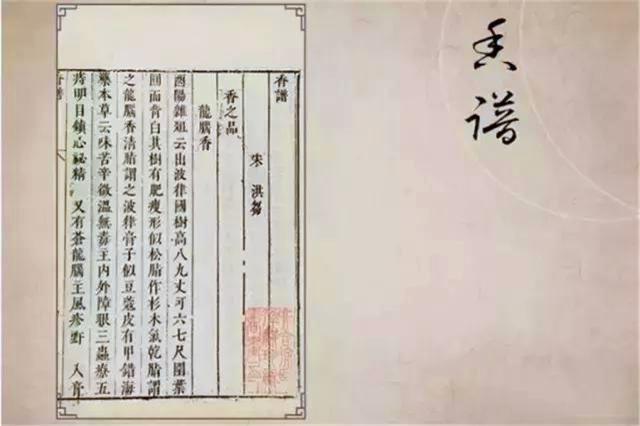 香谱
香譜
宋 洪芻
香之品
龍腦香
酉陽雜俎云出波律國樹高八九丈可六七尺圍葉
圓而背白其樹有肥瘦形似松脂作杉木氣乾脂謂
之龍腦香清脂謂之波律膏子似豆蔻皮有甲錯海
藥本草云味苦辛微溫無毒主內外障眼三蟲療五
痔明目鎮心祕精 又有蒼龍腦主風疹 入膏
香譜